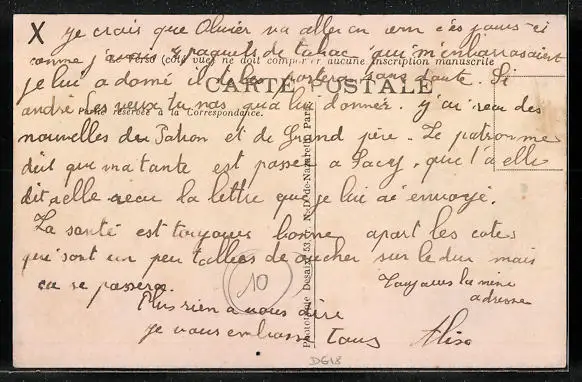 X je crois que Olivier va aller en ces jours-ci
comme j'ai 2 paquets de tabac qui m'embarrasaient
Le Verso (côté vue) ne doit comporter aucune inscription manuscrite
je lui a doné il te les portera sans doute. Si
CARTE POSTALE
andré les veux tu nas qua lui donner. j'ai recu des
Partie réservée à la Correspondance.
nouvelles du Patron et de Grand père. Le patron me
dit que ma tante est passée a Sacy, que t'a elle
dit a elle recu la lettre que je lui ai envoyé.
La santé est toujours bonne apart les cotes
qui sont un peu tallées de coucher sur le dur mais
ca se passera.
Toujours la même
adresse
10
Plus rien a vous dire
je vous embrasse tous
Phototypie Desaix, 53, r. N.-D.-de-Nazareth, Paris
DG18